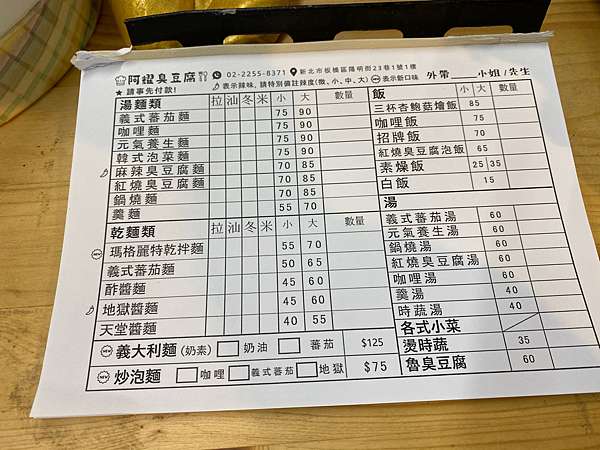 阿耀臭豆腐 02-2255-8371 新北市板橋區陽明街23巷1號1樓
★請事先付款! 表示辣味,請特別備註辣度(微、小、中、大) NEW表示新口味 外帶____小姐/先生
湯麵類 拉 汕 冬 米 小 大 數量
義式蕃茄麵 75 90
咖哩麵 75 90
元氣養生麵 75 90
韓式泡菜麵 75 90
麻辣臭豆腐麵 70 85
紅燒臭豆腐麵 70 85
鍋燒麵 70 85
羹麵 55 70
乾麵類 拉 汕 冬 米 小 大 數量
NEW 瑪格麗特乾拌麵 55 70
義式蕃茄麵 50 65
酢醬麵 45 60
地獄醬麵 45 60
天堂醬麵 40 55
NEW 義大利麵(奶素) 奶油 蕃茄 $125
NEW 炒泡麵 咖哩 義式蕃茄 地獄 $75
飯 小 大 數量
三杯杏鮑菇燴飯 85
咖哩飯 75
招牌飯 70
紅燒臭豆腐泡飯 65
素燥飯 25 35
白飯 15
湯
義式蕃茄湯 60
元氣養生湯 60
鍋燒湯 60
紅燒臭豆腐湯 60
咖哩湯 60
羹湯 40
時蔬湯 40
各式小菜
燙時蔬 35
魯臭豆腐 60